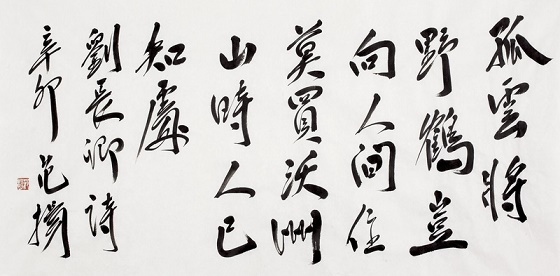 孤雲將
野鶴豈
向人間住
莫買沃洲
山時人已
知處
劉長卿詩
辛卯范揚